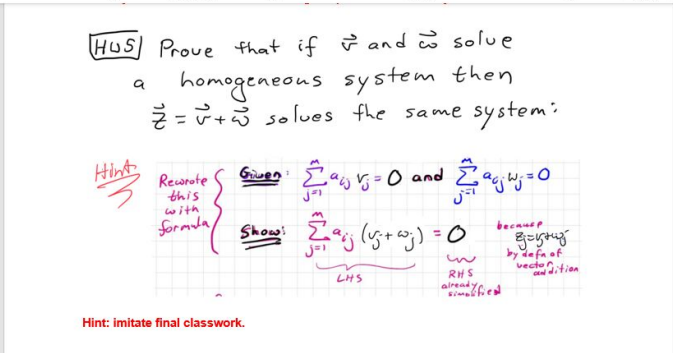 HW5 Prove that if v⃗ and w⃗ solve
a homogeneous system then
z⃗ = v⃗ + w⃗ solves the same system:
Hint Rewrote this with formula
Given: ∑_{j=1}^{m} a_{ij} v_j = 0 and ∑_{j=1}^{m} a_{ij} w_j = 0
Show: ∑_{j=1}^{m} a_{ij} (v_j + w_j) = 0
LHS
RHS already simplified
because z_j = v_j + w_j by defn of vector addition
Hint: imitate final classwork.